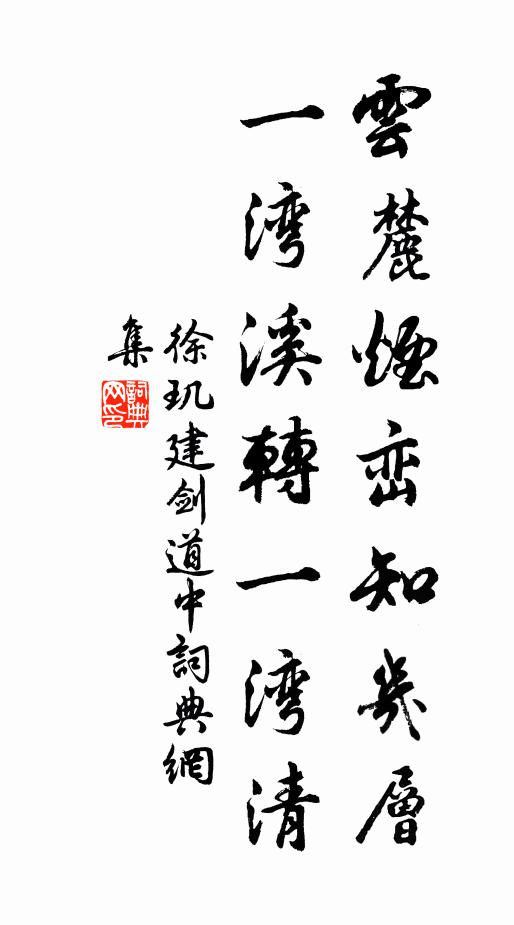 雲麓煙峦知幾層
一湾溪轉一湾清
徐玑建剑道中詞典網
集
詞典网印